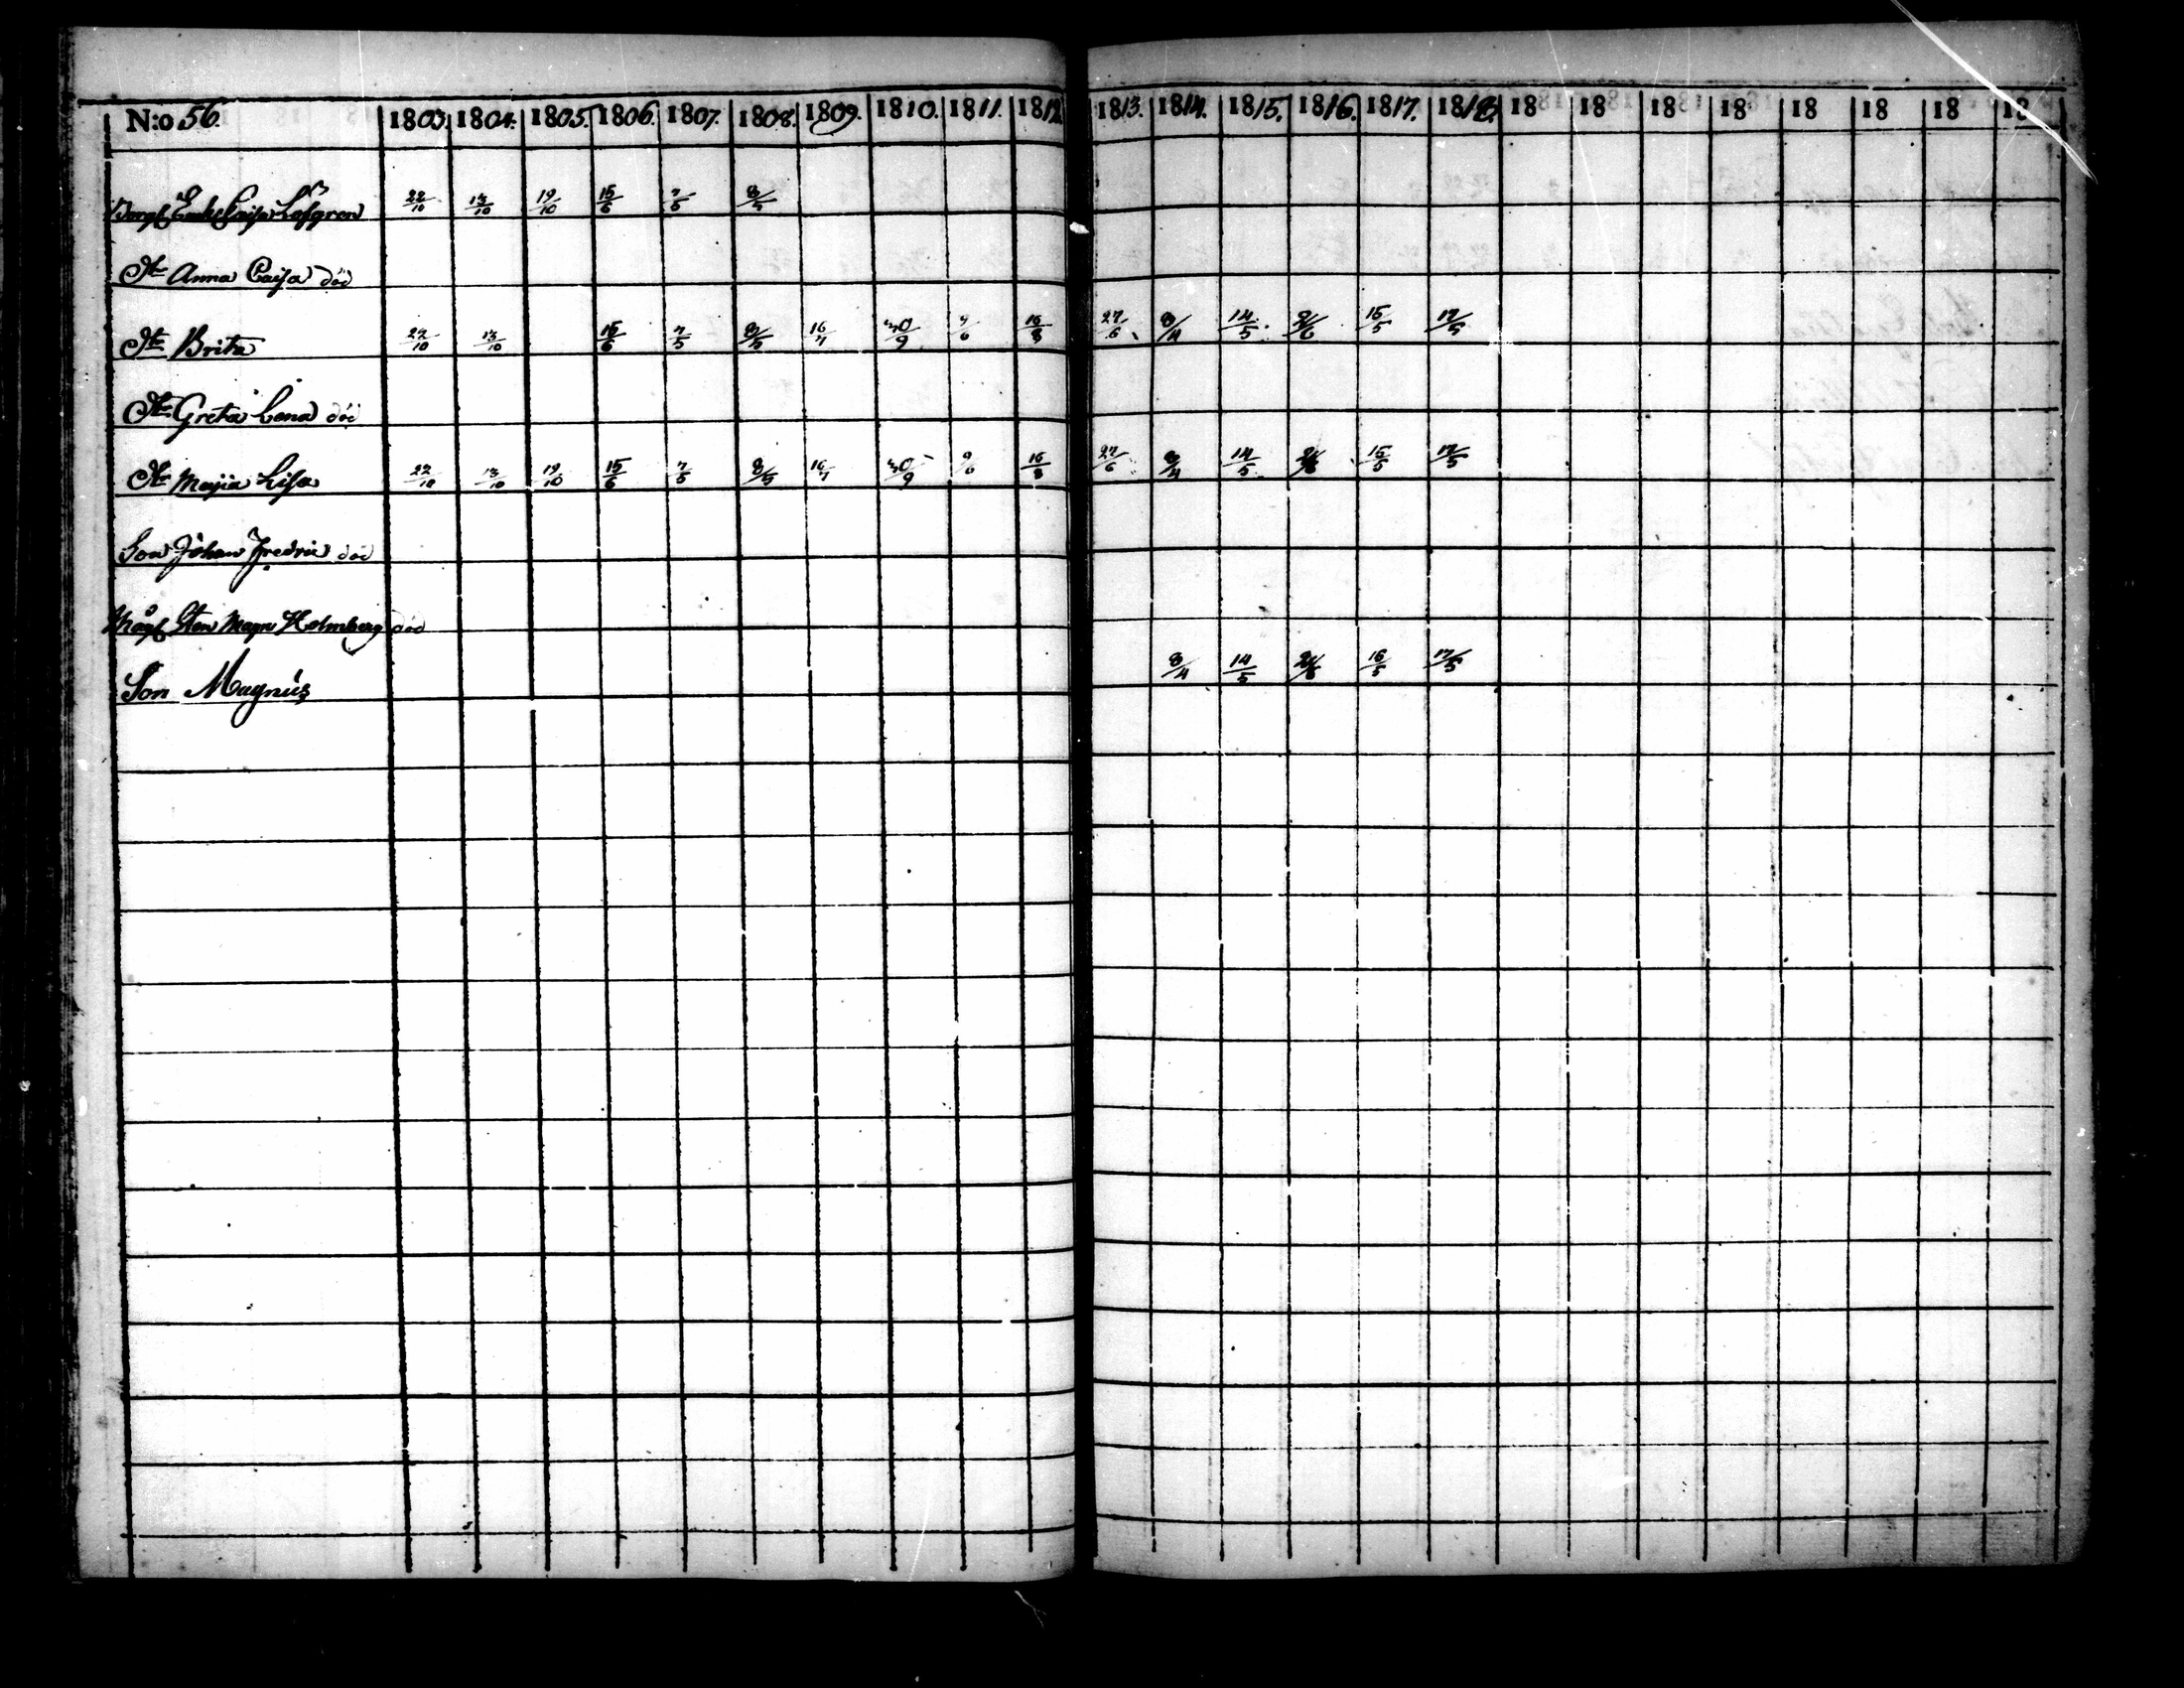 N:o 56. 1803. 1804. 1805. 1806. 1807. 1808. 1809. 1810. 1811. 1812. 1813. 1814. 1815. 1816. 1817. 1818. 18 18 18 18 18 18 18 18
Enk Caisa Löfgren 22/10 13/10 19/10 15/6 7/5 8/5
Dtr Anna Caisa död
Dtr Brita 22/10 13/10 15/6 7/5 8/5 16/7 30/9 9/6 16/8 27/6 8/4 14/5 2/6 15/5 17/5
Dtr Greta Lena död
Dtr Maija Lisa 22/10 13/10 19/10 15/6 7/5 8/5 16/7 30/9 9/6 16/8 27/6 8/4 14/5 15/5 17/5
Son Johan Fredric död
Sten Magn Holmberg död
Son Magnus 8/4 14/5 15/5 17/5